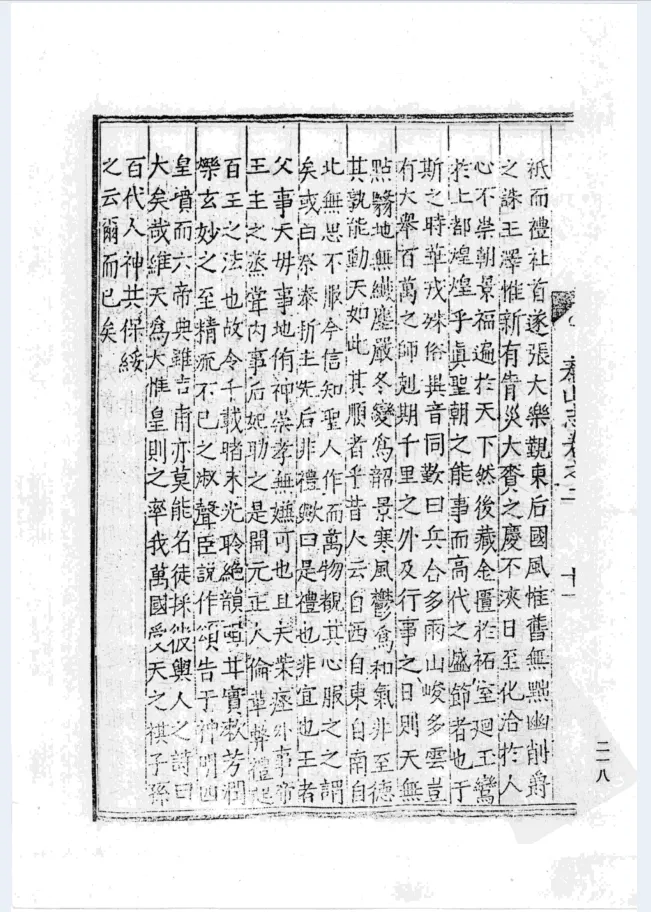 祇而禮社首遂張大樂覲東后國風惟舊無黜幽削爵
之誅王澤惟新有眚災大賚之慶不浹日至化洽於人
心不崇朝景福遍於天下然後藏金匱於祏室廻玉鸞
於上都煌煌乎眞聖朝之能事而高代之盛節者也于
斯之時華戎殊俗異音同歎曰兵合多雨山峻多雲豈
有大舉百萬之師剋期千里之外及行事之日則天無
點翳地無纖塵嚴冬變爲韶景寒風鬱爲和氣非至德
其孰能動天如此其順者乎昔人云自西自東自南自
北無思不服今信知聖人作而萬物覩其心服之之謂
矣或曰祭泰折主先后非禮歟曰是禮也非宜也王者
父事天母事地侑神崇孝無嫌可也且夫柴瘞外事帝
王主之蒸嘗內事后妃助之是開元正人倫革弊禮起
百王之法也故令千載睹末光聆絕韻咀其實漱芳潤
爍玄妙之至精流不已之淑聲臣說作頌告于神明四
皇墳而六帝典雖吉甫亦莫能名徒採彼輿人之詩曰
大矣哉維天爲大惟皇則之率我萬國受天之祺子孫
百代人神共保綏
之云爾而已矣
泰山志卷之二 十一
二一八